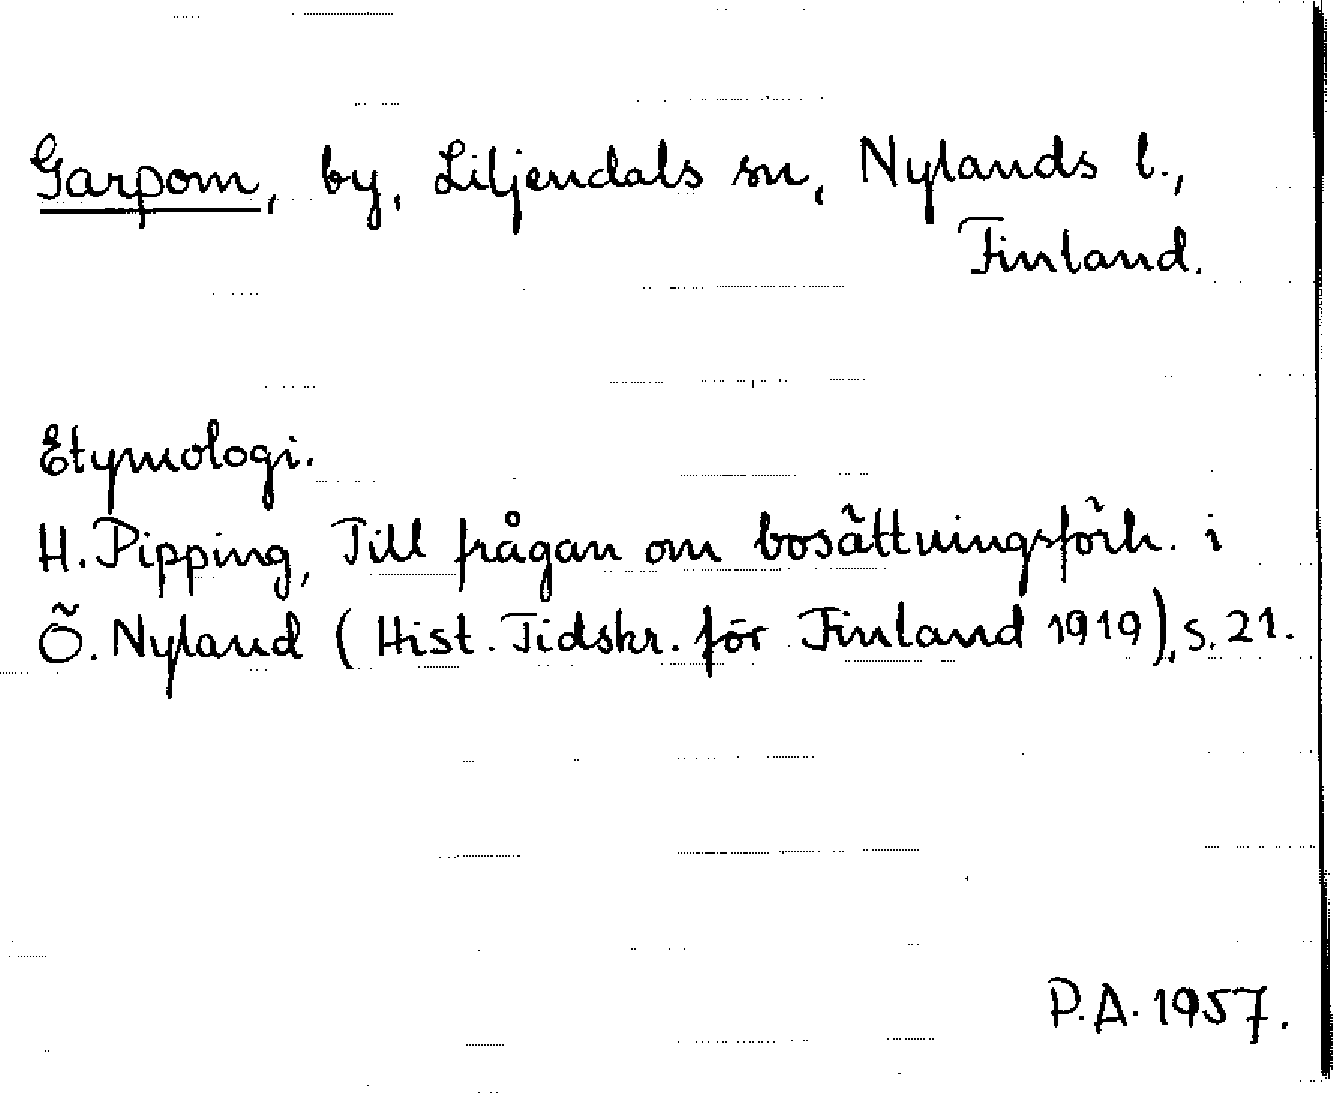 Garpom, by, Liljendals sn, Nylands l.,
Finland.
Etymologi.
H. Pipping, Till frågan om bosättningsförh. i
Ö. Nyland (Hist. Tidskr. för Finland 1919), s. 21.
P.A. 1957.